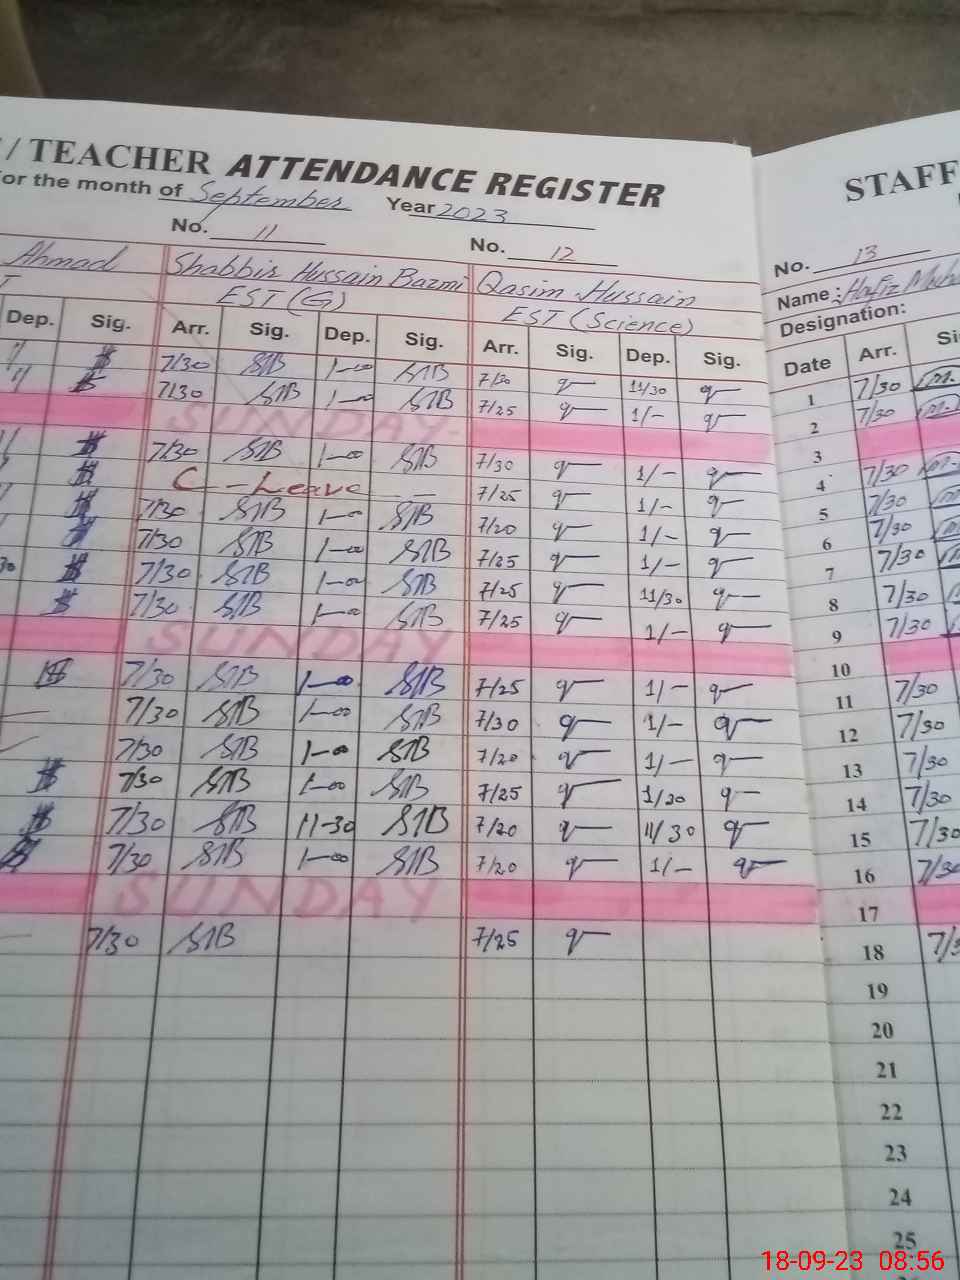 / TEACHER ATTENDANCE REGISTER
For the month of September Year 2023
No. 11 No. 12
Ahmad Shabbir Hussain Bazmi Qasim Hussain
EST (G) EST (Science)
Dep. Sig. Arr. Sig. Dep. Sig. Arr. Sig. Dep. Sig.
7/30 STB 1-00 STB 7/20 11/30
7/30 STB 1-00 STB 7/25 1/-
SUNDAY
7/30 STB 1-00 STB 7/30 1/-
C-Leave 7/25 1/-
7/30 STB 1-00 STB 7/20 1/-
7/30 STB 1-00 STB 7/25 1/-
7/30 STB 1-00 STB 7/25 11/30
7/30 STB 1-00 STB 7/25 1/-
SUNDAY
7/30 STB 1-00 STB 7/25 1/-
7/30 STB 1-00 STB 7/30 1/-
7/30 STB 1-00 STB 7/20 1/-
7/30 STB 1-00 STB 7/25 1/20
7/30 STB 11-30 STB 7/20 11/30
7/30 STB 1-00 STB 7/20 1/-
SUNDAY
7/30 STB 7/25
STAFF
No. 13
Name: Hafiz
Designation:
Date Arr.
1 7/30
2 7/30
3
4 7/30
5 7/30
6 7/30
7 7/30
8 7/30
9 7/30
10
11 7/30
12 7/30
13 7/30
14 7/30
15 7/30
16 7/30
17
18
19
20
21
22
23
24
25
18-09-23 08:56